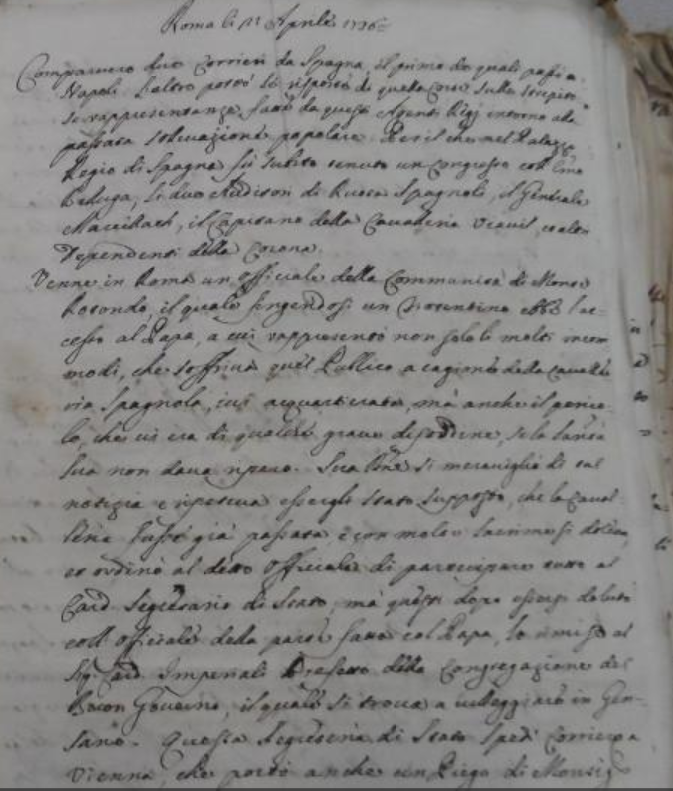 Roma li 21 Aprile 1736
Comparvero due Corrieri da Spagna, il primo de quali passò a
Napoli. L'altro portò le risposte di quella Corte sulle strepito-
se rappresentanze fatte da questi Agenti Regj intorno alla
passata sollevazione popolare. Per il che nel Palazzo
Regio di Spagna fù subito tenuto un Congresso coll' Emo
Belluga, li due Auditori di Ruota Spagnoli, il Generale
il Capitano della Cavalleria et altri
Dipendenti della Corona.
Venne in Roma un officiale della Communità di Monte
Rotondo, il quale fingendosi un Fiorentino ebbe l'ac-
cesso al Papa, a cui rappresentò non solo li molti incom-
modi, che soffriva quel Publico a cagione della Cavalle-
ria Spagnola, ivi acquartierata, mà anche il perico-
lo, che vi era di qualche grave disordine, se la Santità
Sua non dava riparo. Sua Bne si meravigliò di tal
notizia e rispose essergli stato supposto, che la Caval-
leria fusse già passata e con molte lacrime si dolse,
et ordinò al detto officiale di participare tutto al
Card. Segretario di Stato, mà questi dopo essersi doluto
coll' officiale della parte fatta col Papa, lo rimise al
Sig. Card. Imperiali Prefetto della Congregazione del
Buon Governo, il quale si trova a villeggiare in Gen-
sano. Questa Segreteria di Stato spedì Corriero a
Vienna, che portò anche un Piego di Monsig